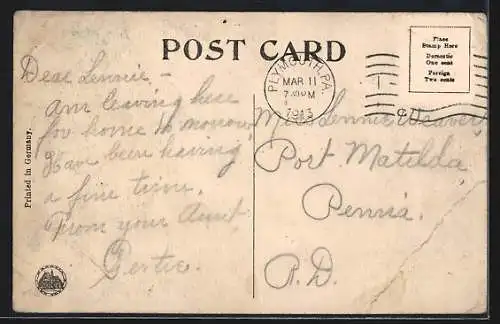 POST CARD
Place
Stamp Here
Domestic
One cent
Foreign
Two cents
PLYMOUTH, PA.
MAR 11
7 30 PM
1913
Dear Lennie -
am leaving here
for home to morrow,
Have been having
a fine time.
From your Aunt
Gertie.
Miss Lennie Weaver
Port Matilda
Penna.
R.D.
Printed in Germany.